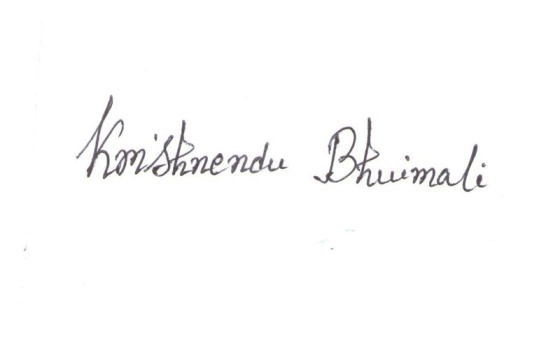 Krishnendu Bhuimali